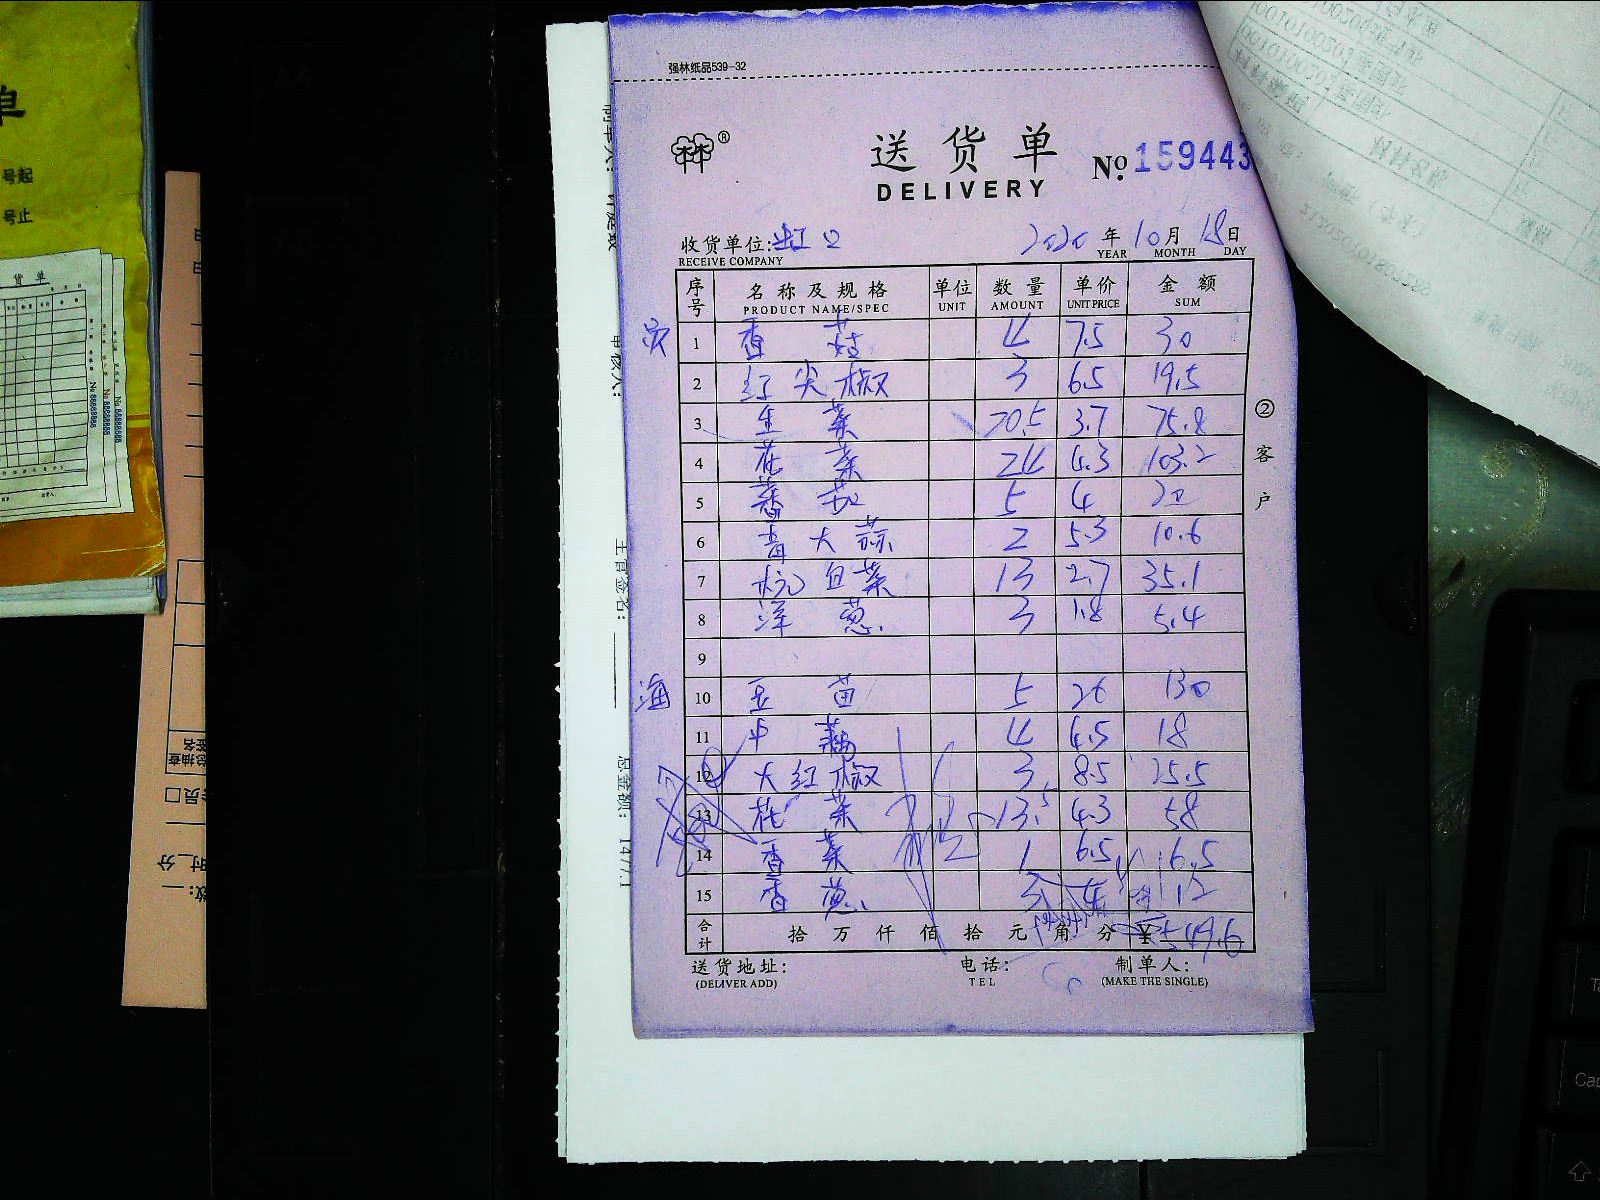 强林纸品539-32
送货单
DELIVERY
No. 159443
收货单位: 虹口 2020年10月18日
RECEIVE COMPANY YEAR MONTH DAY
序号 名称及规格 单位 数量 单价 金额
PRODUCT NAME/SPEC UNIT AMOUNT UNIT PRICE SUM
1 香菇 4 7.5 30
2 红尖椒 3 6.5 19.5
3 生菜 20.5 3.7 75.8
4 花菜 24 4.3 103.2
5 番茄 5 4 20
6 青大蒜 2 5.3 10.6
7 杭白菜 13 2.7 35.1
8 洋葱 3 1.8 5.4
9
海 10 豆苗 5 26 130
11 中藕 4 4.5 18
12 大红椒 3 8.5 25.5
13 花菜 13.5 4.3 58
14 香菜 1 6.5 6.5
15 香葱 3 4 12
合计 拾万仟佰拾元角分 ¥549.6
送货地址: 电话: 制单人:
(DELIVER ADD) TEL (MAKE THE SINGLE)
②客户
主管签名:
总金额: 1477.1
单
号起
号止
货单